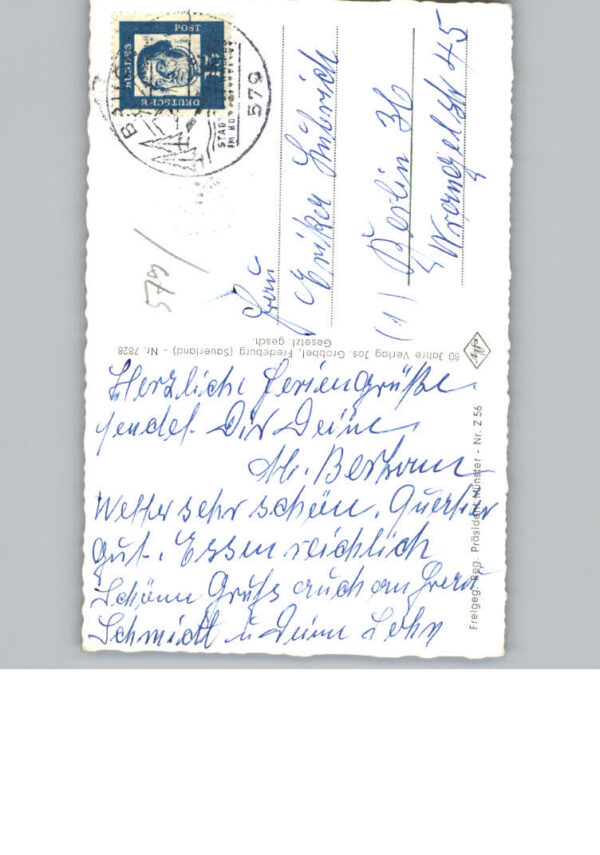 Herzliche Feriengrüße
sendet Dir Deine
M. Bertram
Wetter sehr schön. Quartier
gut. Essen reichlich
Schöne Grüße auch an Frau
Schmidt u Deine
Frau
Erika
(1) Berlin 36
Wrangelstr 45
579
DEUTSCHE
BUNDES
POST
15
579
STADT
80 Jahre Verlag Jos. Grobbel, Fredeburg (Sauerland) - Nr. 7828
Gesetzl. gesch.
Agfa
Freigeg. Reg. Präsident Münster - Nr. Z 56